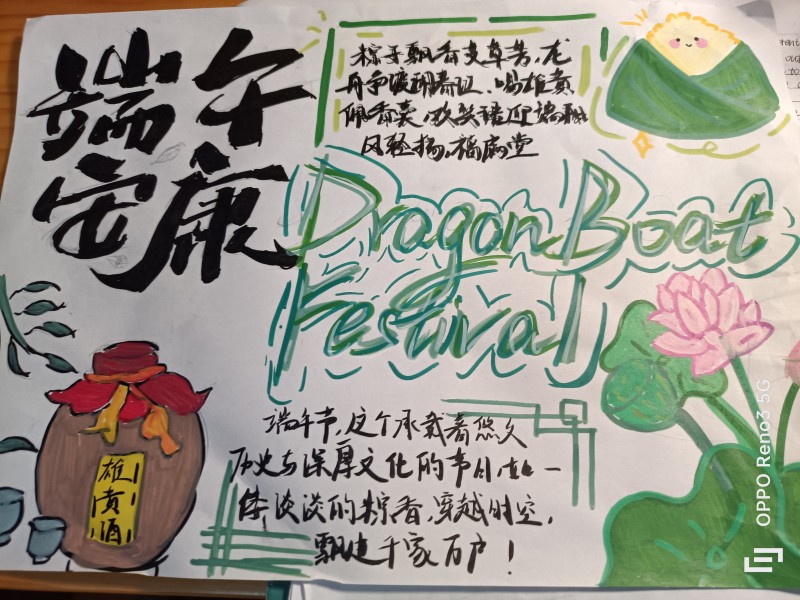 端午
安康
粽子飘香艾草芳,龙
舟争渡 喝雄黄
佩香囊,欢笑语迎端阳
风轻扬,福满堂
Dragon Boat
Festival
雄
黄
酒
端午节,这个承载着悠久
历史与深厚文化的节日,如一
缕淡淡的粽香,穿越时空,
飘进千家万户!
OPPO Reno3 5G